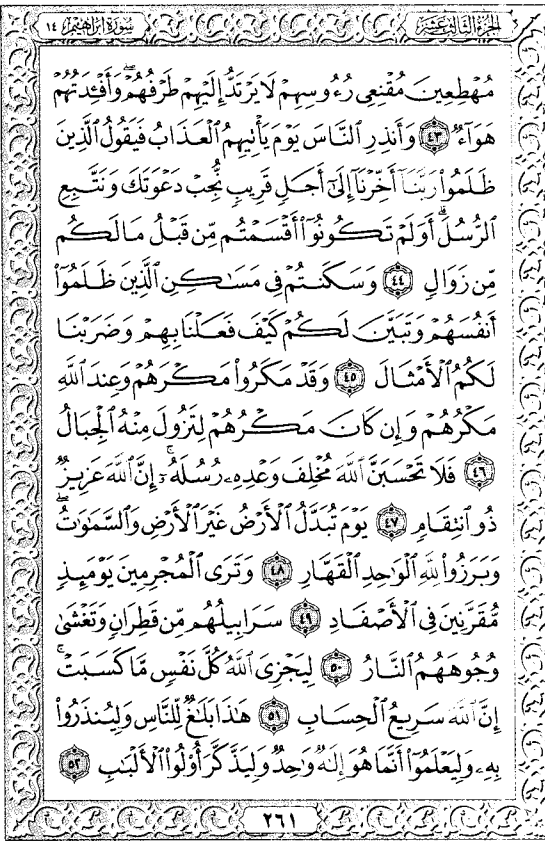 الجزء الثالث عشر
سورة إبراهيم ١٤
مُهْطِعِينَ مُقْنِعِى رُءُوسِهِمْ لَا يَرْتَدُّ إِلَيْهِمْ طَرْفُهُمْ ۖ وَأَفْـِٔدَتُهُمْ
هَوَآءٌ ٤٣ وَأَنذِرِ ٱلنَّاسَ يَوْمَ يَأْتِيهِمُ ٱلْعَذَابُ فَيَقُولُ ٱلَّذِينَ
ظَلَمُوا۟ رَبَّنَآ أَخِّرْنَآ إِلَىٰٓ أَجَلٍ قَرِيبٍ نُّجِبْ دَعْوَتَكَ وَنَتَّبِعِ
ٱلرُّسُلَ ۗ أَوَلَمْ تَكُونُوٓا۟ أَقْسَمْتُم مِّن قَبْلُ مَا لَكُم
مِّن زَوَالٍ ٤٤ وَسَكَنتُمْ فِى مَسَـٰكِنِ ٱلَّذِينَ ظَلَمُوٓا۟
أَنفُسَهُمْ وَتَبَيَّنَ لَكُمْ كَيْفَ فَعَلْنَا بِهِمْ وَضَرَبْنَا
لَكُمُ ٱلْأَمْثَالَ ٤٥ وَقَدْ مَكَرُوا۟ مَكْرَهُمْ وَعِندَ ٱللَّهِ
مَكْرُهُمْ وَإِن كَانَ مَكْرُهُمْ لِتَزُولَ مِنْهُ ٱلْجِبَالُ
٤٦ فَلَا تَحْسَبَنَّ ٱللَّهَ مُخْلِفَ وَعْدِهِۦ رُسُلَهُۥٓ ۗ إِنَّ ٱللَّهَ عَزِيزٌ
ذُو ٱنتِقَامٍ ٤٧ يَوْمَ تُبَدَّلُ ٱلْأَرْضُ غَيْرَ ٱلْأَرْضِ وَٱلسَّمَـٰوَٰتُ ۖ
وَبَرَزُوا۟ لِلَّهِ ٱلْوَٰحِدِ ٱلْقَهَّارِ ٤٨ وَتَرَى ٱلْمُجْرِمِينَ يَوْمَئِذٍ
مُّقَرَّنِينَ فِى ٱلْأَصْفَادِ ٤٩ سَرَابِيلُهُم مِّن قَطِرَانٍ وَتَغْشَىٰ
وُجُوهَهُمُ ٱلنَّارُ ٥٠ لِيَجْزِىَ ٱللَّهُ كُلَّ نَفْسٍ مَّا كَسَبَتْ ۚ
إِنَّ ٱللَّهَ سَرِيعُ ٱلْحِسَابِ ٥١ هَـٰذَا بَلَـٰغٌ لِّلنَّاسِ وَلِيُنذَرُوا۟
بِهِۦ وَلِيَعْلَمُوٓا۟ أَنَّمَا هُوَ إِلَـٰهٌ وَٰحِدٌ وَلِيَذَّكَّرَ أُو۟لُوا۟ ٱلْأَلْبَـٰبِ ٥٢
٢٦١